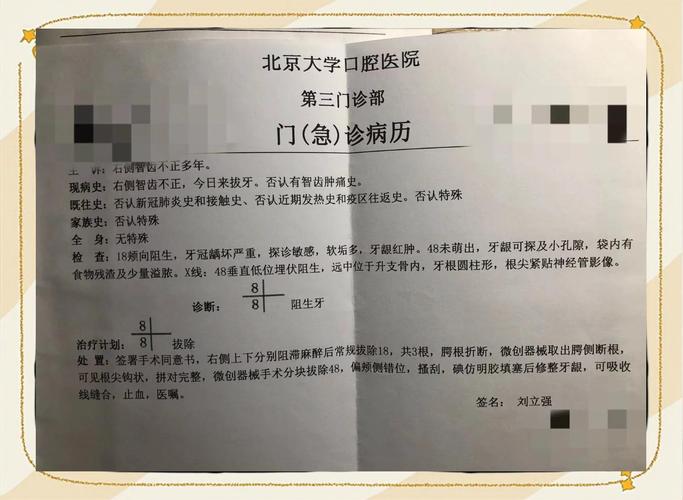 北京大学口腔医院
第三门诊部
门(急)诊病历
主 诉: 右侧智齿不正多年。
现病史: 右侧智齿不正，今日来拔牙。否认有智齿肿痛史。
既往史: 否认新冠肺炎史和接触史、否认近期发热史和疫区往返史。否认特殊
家族史: 否认特殊
全 身: 无特殊
检 查: 18颊向阻生，牙冠龋坏严重，探诊敏感，软垢多，牙龈红肿。48未萌出，牙龈可探及小孔隙，袋内有
食物残渣及少量溢脓。X线: 48垂直低位埋伏阻生，远中位于升支骨内，牙根圆柱形，根尖紧贴神经管影像。
8
诊断: 8 阻生牙
8
治疗计划: 8 拔除
处 置: 签署手术同意书，右侧上下分别阻滞麻醉后常规拔除18，共3根，腭根折断，微创器械取出腭侧断根，
可见根尖钩状，拼对完整，微创器械手术分块拔除48，偏颊侧错位，搔刮，碘仿明胶填塞后修整牙龈，可吸收
线缝合，止血，医嘱。
签名: 刘立强